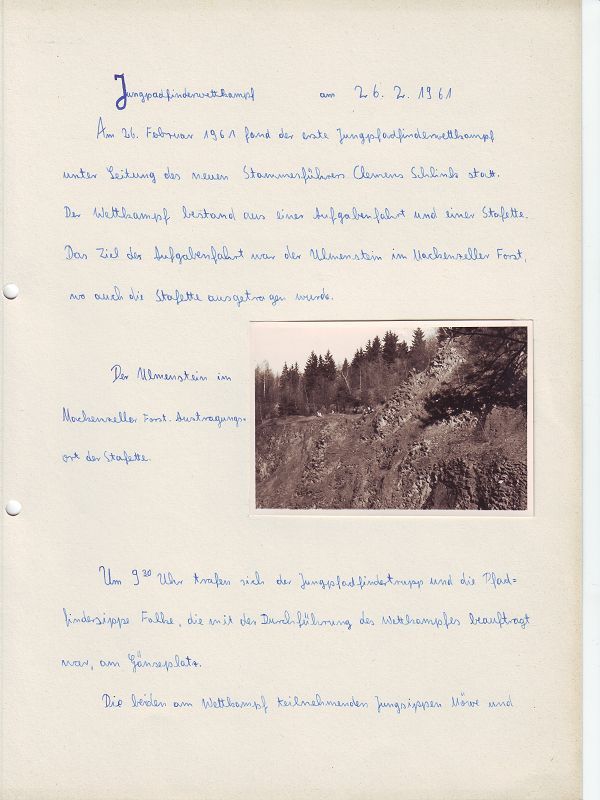 Jungpfadfinderwettkampf am 26. 2. 1961
Am 26. Februar 1961 fand der erste Jungpfadfinderwettkampf
unter Leitung des neuen Stammesführers Clemens Schlink statt.
Der Wettkampf bestand aus einer Aufgabenfahrt und einer Stafette.
Das Ziel der Aufgabenfahrt war der Ulmenstein im Mackenzeller Forst,
wo auch die Stafette ausgetragen wurde.
Der Ulmenstein im
Mackenzeller Forst. Austragungs-
ort der Stafette.
Um 9 30 Uhr trafen sich der Jungpfadfindertrupp und die Pfad=
findersippe Falke, die mit der Durchführung des Wettkampfes beauftragt
war, am Gänseplatz.
Die beiden am Wettkampf teilnehmenden Jungsippen Möwe und